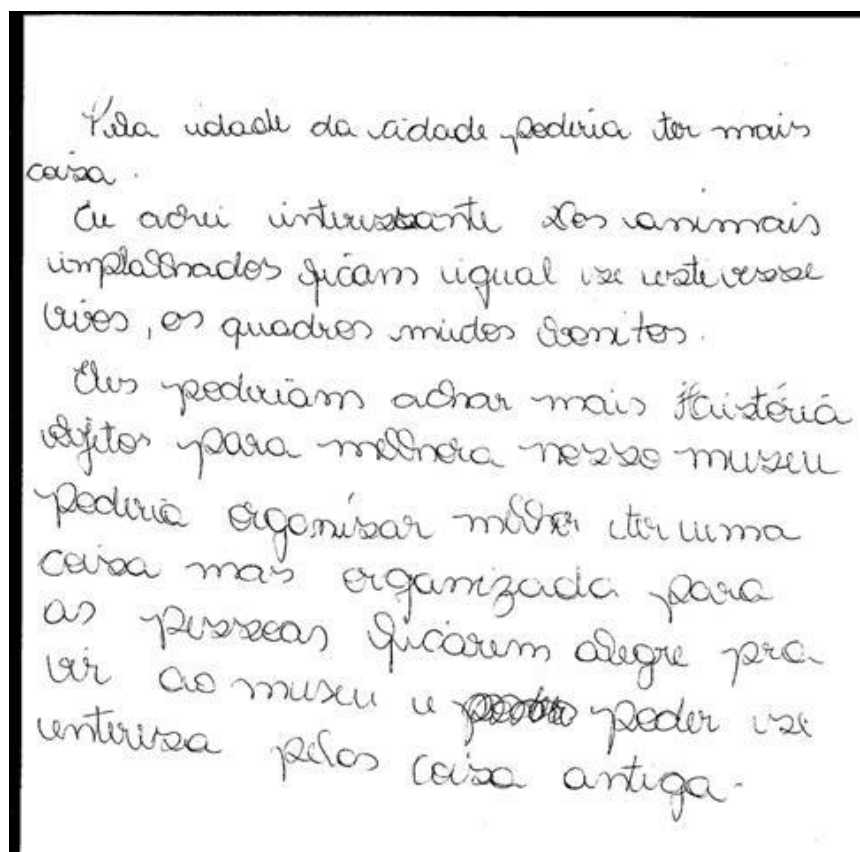 Pela idade da cidade poderia ter mais
coisa.
Eu achei interessante dos animais
implalhados ficam igual se estivesse
vivos, os quadros mudos bonitos.
Eles poderiam achar mais História
objetos para melhora nosso museu
poderia organisar melhor ter uma
coisa mas organizada para
as pessoas ficarem alegre pra
vir ao museu e poder se
enteresa pelos coisa antiga.